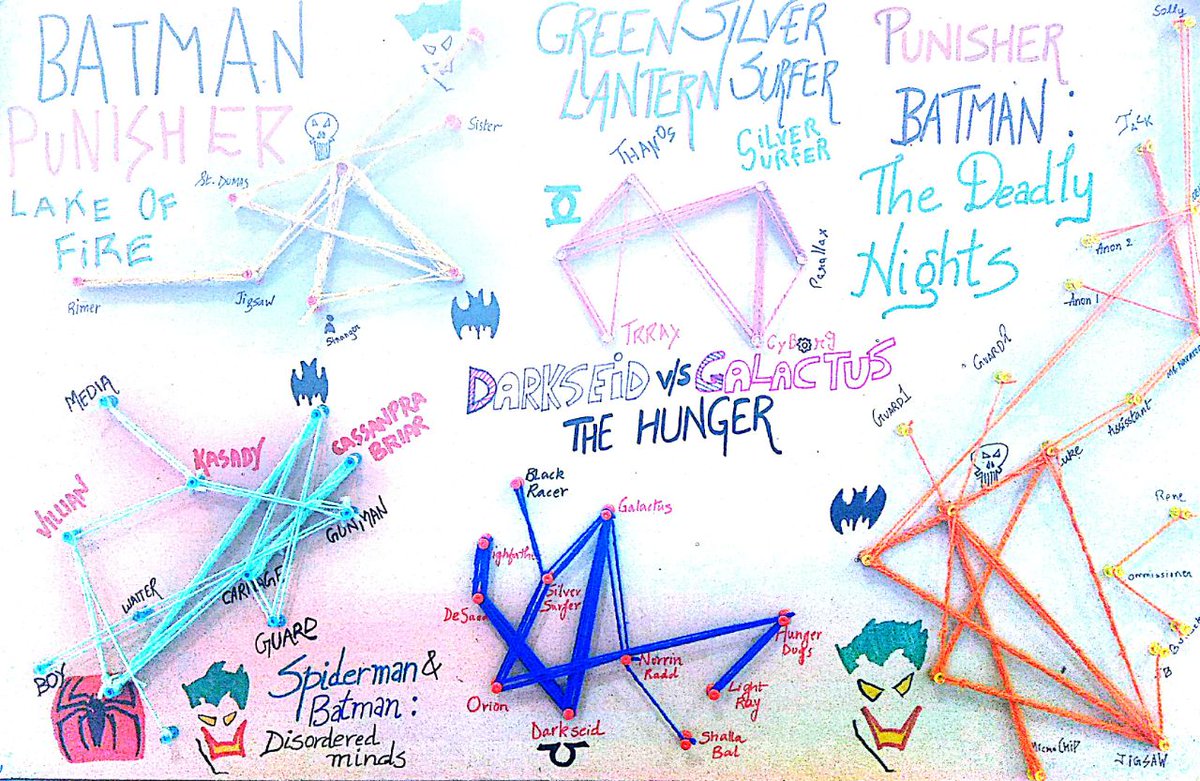 BATMAN
PUNISHER
LAKE OF
FIRE
Sister
St. Dumas
Rimer
Jigsaw
Stranger
GREEN SILVER
LANTERN SURFER
THANOS
SILVER
SURFER
Parallax
TRRAX
CyBorg
PUNISHER
BATMAN :
The Deadly
Nights
Sally
Jack
Anon 2
Anon 1
Guard 2
Guard 1
Assistant
Luke
Rene
Commissioner
Bullock
B
MicroChip
JIGSAW
MEDIA
KASADY
CASSANDRA
BRIAR
VILLIAN
GUNMAN
WAITER
CARNAGE
GUARD
BOY
Spiderman &
Batman :
Disordered
minds
DARKSEID v/s GALACTUS
THE HUNGER
Black
Racer
Galactus
Silver
Surfer
Orion
Darkseid
Norrin
Radd
Hunger
Dogs
Light
Ray
Shalla
Bal